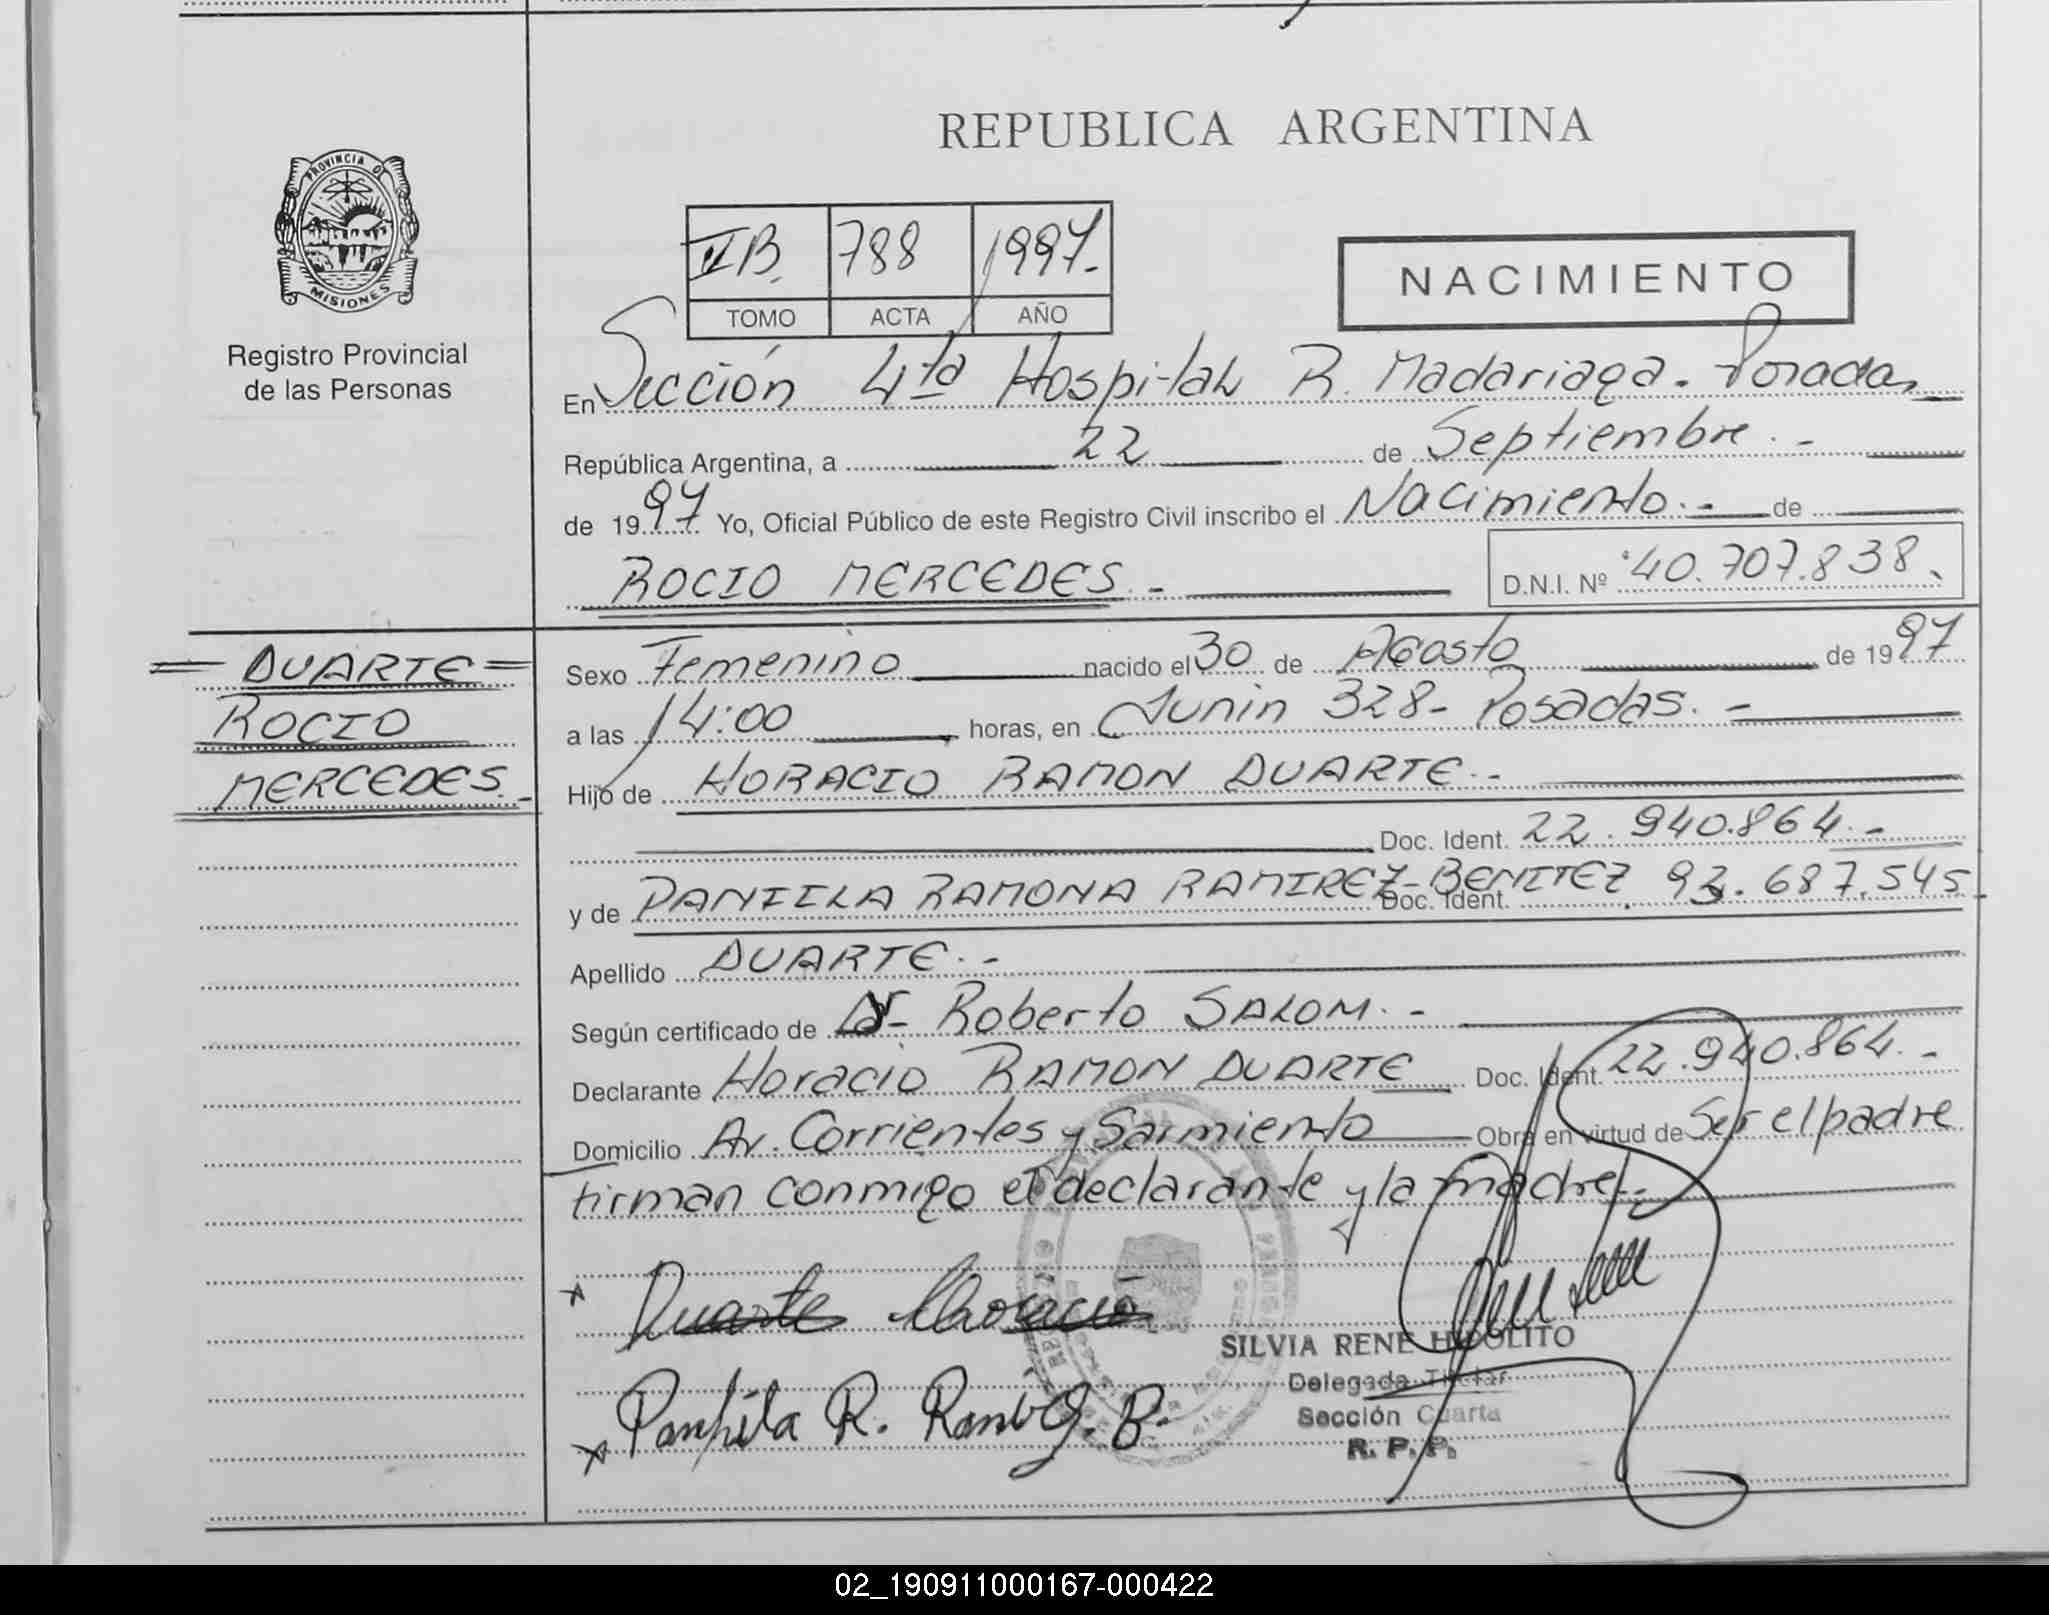 REPUBLICA ARGENTINA
PROVINCIA D
MISIONES
Registro Provincial
de las Personas
IIB. 788 1997.-
TOMO ACTA AÑO
NACIMIENTO
En Sección 4ta Hospital R. Madariaga. Posadas
República Argentina, a 22 de Septiembre.-
de 1997 Yo, Oficial Público de este Registro Civil inscribo el Nacimiento.- de
ROCIO MERCEDES.- D.N.I. Nº 40.707.838.
DUARTE
ROCIO
MERCEDES.-
Sexo Femenino nacido el 30 de Agosto de 1997
a las 14:00 horas, en Junin 328- Posadas.-
Hijo de HORACIO RAMON DUARTE.-
Doc. Ident. 22.940.864.-
y de RAMONA RAMIREZ-BENITEZ Doc. Ident. 93.687.545
Apellido DUARTE.-
Según certificado de Dr- Roberto SALOM.-
Declarante Horacio RAMON DUARTE Doc. Ident. 22.940.864.-
Domicilio Av. Corrientes y Sarmiento Obra en virtud de Ser el padre
firman conmigo el declarante y la madre.-
Duarte Horacio
R. B.
SILVIA RENE HIPOLITO
Delegada Titular
Sección Cuarta
R. P. P.
02_190911000167-000422